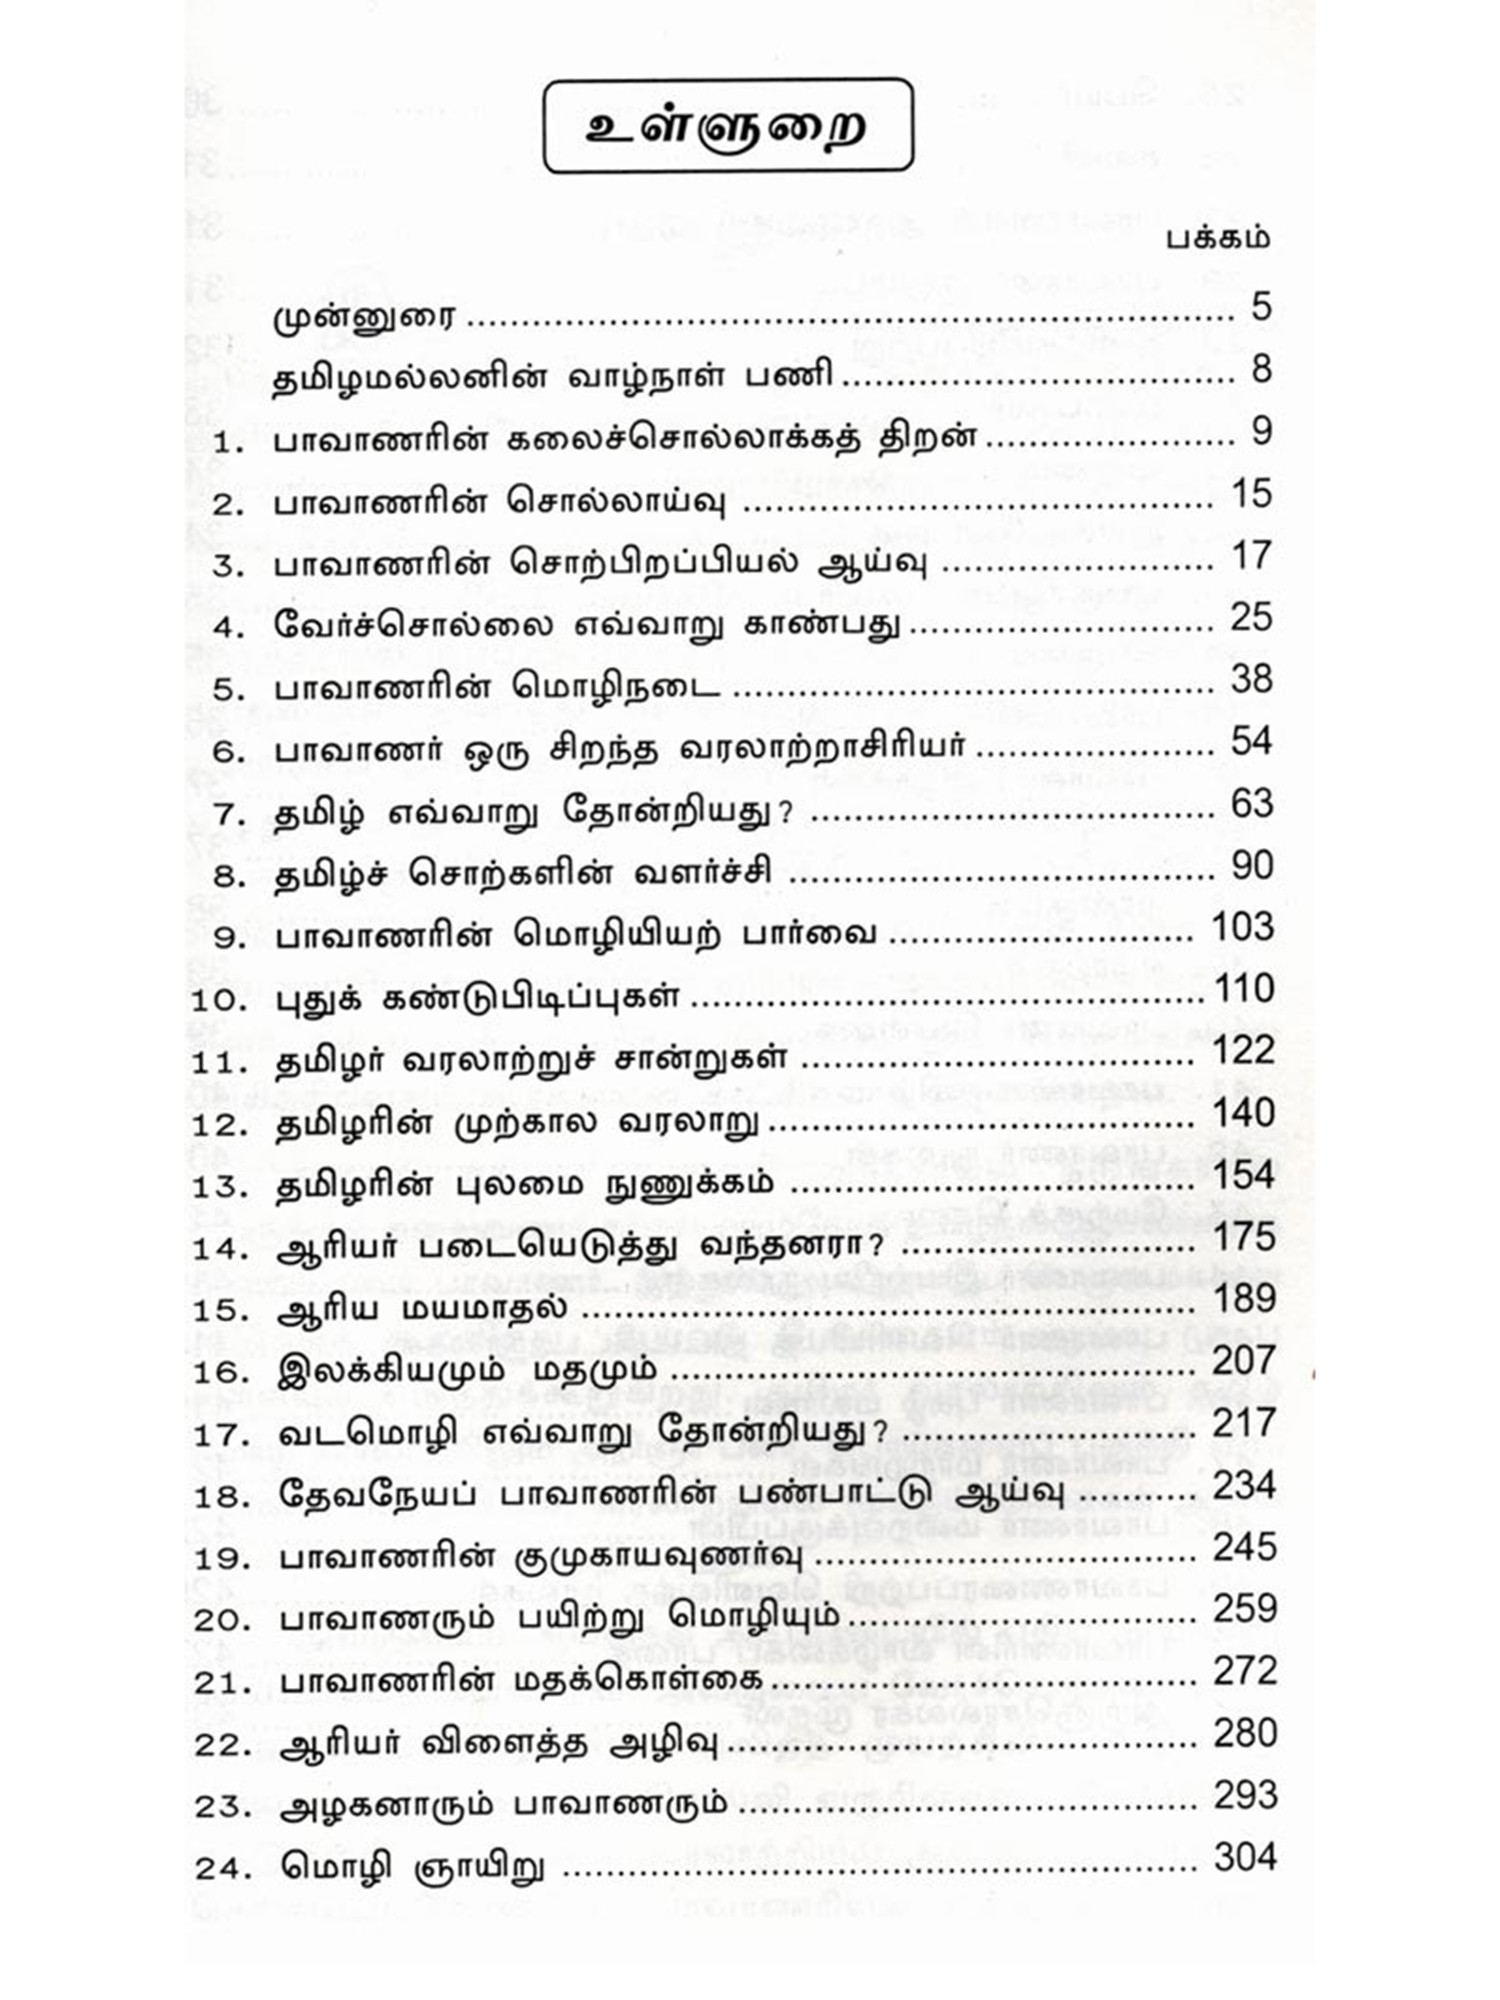 உள்ளுறை
பக்கம்
முன்னுரை ........ 5
தமிழமல்லனின் வாழ்நாள் பணி ........ 8
1. பாவாணரின் கலைச்சொல்லாக்கத் திறன் ........ 9
2. பாவாணரின் சொல்லாய்வு ........ 15
3. பாவாணரின் சொற்பிறப்பியல் ஆய்வு ........ 17
4. வேர்ச்சொல்லை எவ்வாறு காண்பது ........ 25
5. பாவாணரின் மொழிநடை ........ 38
6. பாவாணர் ஒரு சிறந்த வரலாற்றாசிரியர் ........ 54
7. தமிழ் எவ்வாறு தோன்றியது? ........ 63
8. தமிழ்ச் சொற்களின் வளர்ச்சி ........ 90
9. பாவாணரின் மொழியியற் பார்வை ........ 103
10. புதுக் கண்டுபிடிப்புகள் ........ 110
11. தமிழர் வரலாற்றுச் சான்றுகள் ........ 122
12. தமிழரின் முற்கால வரலாறு ........ 140
13. தமிழரின் புலமை நுணுக்கம் ........ 154
14. ஆரியர் படையெடுத்து வந்தனரா? ........ 175
15. ஆரிய மயமாதல் ........ 189
16. இலக்கியமும் மதமும் ........ 207
17. வடமொழி எவ்வாறு தோன்றியது? ........ 217
18. தேவநேயப் பாவாணரின் பண்பாட்டு ஆய்வு ........ 234
19. பாவாணரின் குமுகாயவுணர்வு ........ 245
20. பாவாணரும் பயிற்று மொழியும் ........ 259
21. பாவாணரின் மதக்கொள்கை ........ 272
22. ஆரியர் விளைத்த அழிவு ........ 280
23. அழகனாரும் பாவாணரும் ........ 293
24. மொழி ஞாயிறு ........ 304